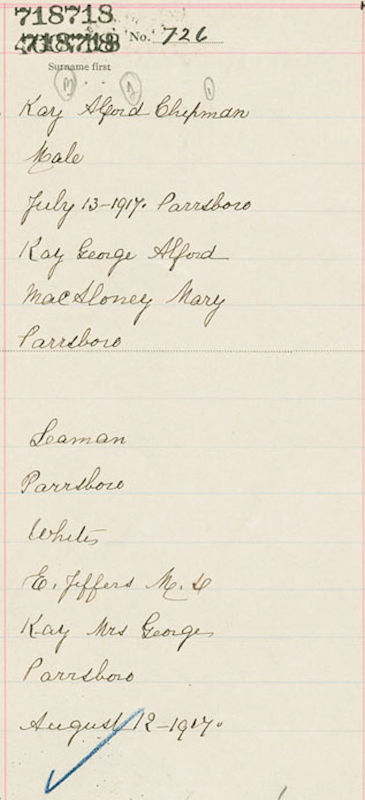 718718
718718 No. 726
Surname first
Kay Alford Chipman
Male
July 13-1917. Parrsboro
Kay George Alford
MacAloney Mary
Parrsboro
Seaman
Parrsboro
White
E. Jeffers M.D
Kay Mrs George
Parrsboro
August 12-1917.